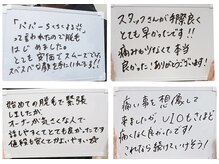 「パパーちくちくする」
って言われたので脱毛
はじめました。
とても安価でスムーズで
スベスベな肌を手に入れれる!!
スタッフさんが手際良く
とても早かったです!!
痛みもほぼなくて本当
良かった!ありがとうございます!
始めての脱毛で緊張
しましたが、
オーナーが気さくな人で
話しやすくてとても良かったです
値段も安くてよいですね☆
痛い事を想像して
来ましたが、VIOもさほど
痛くなく良かったです!
これなら続けていけそう!